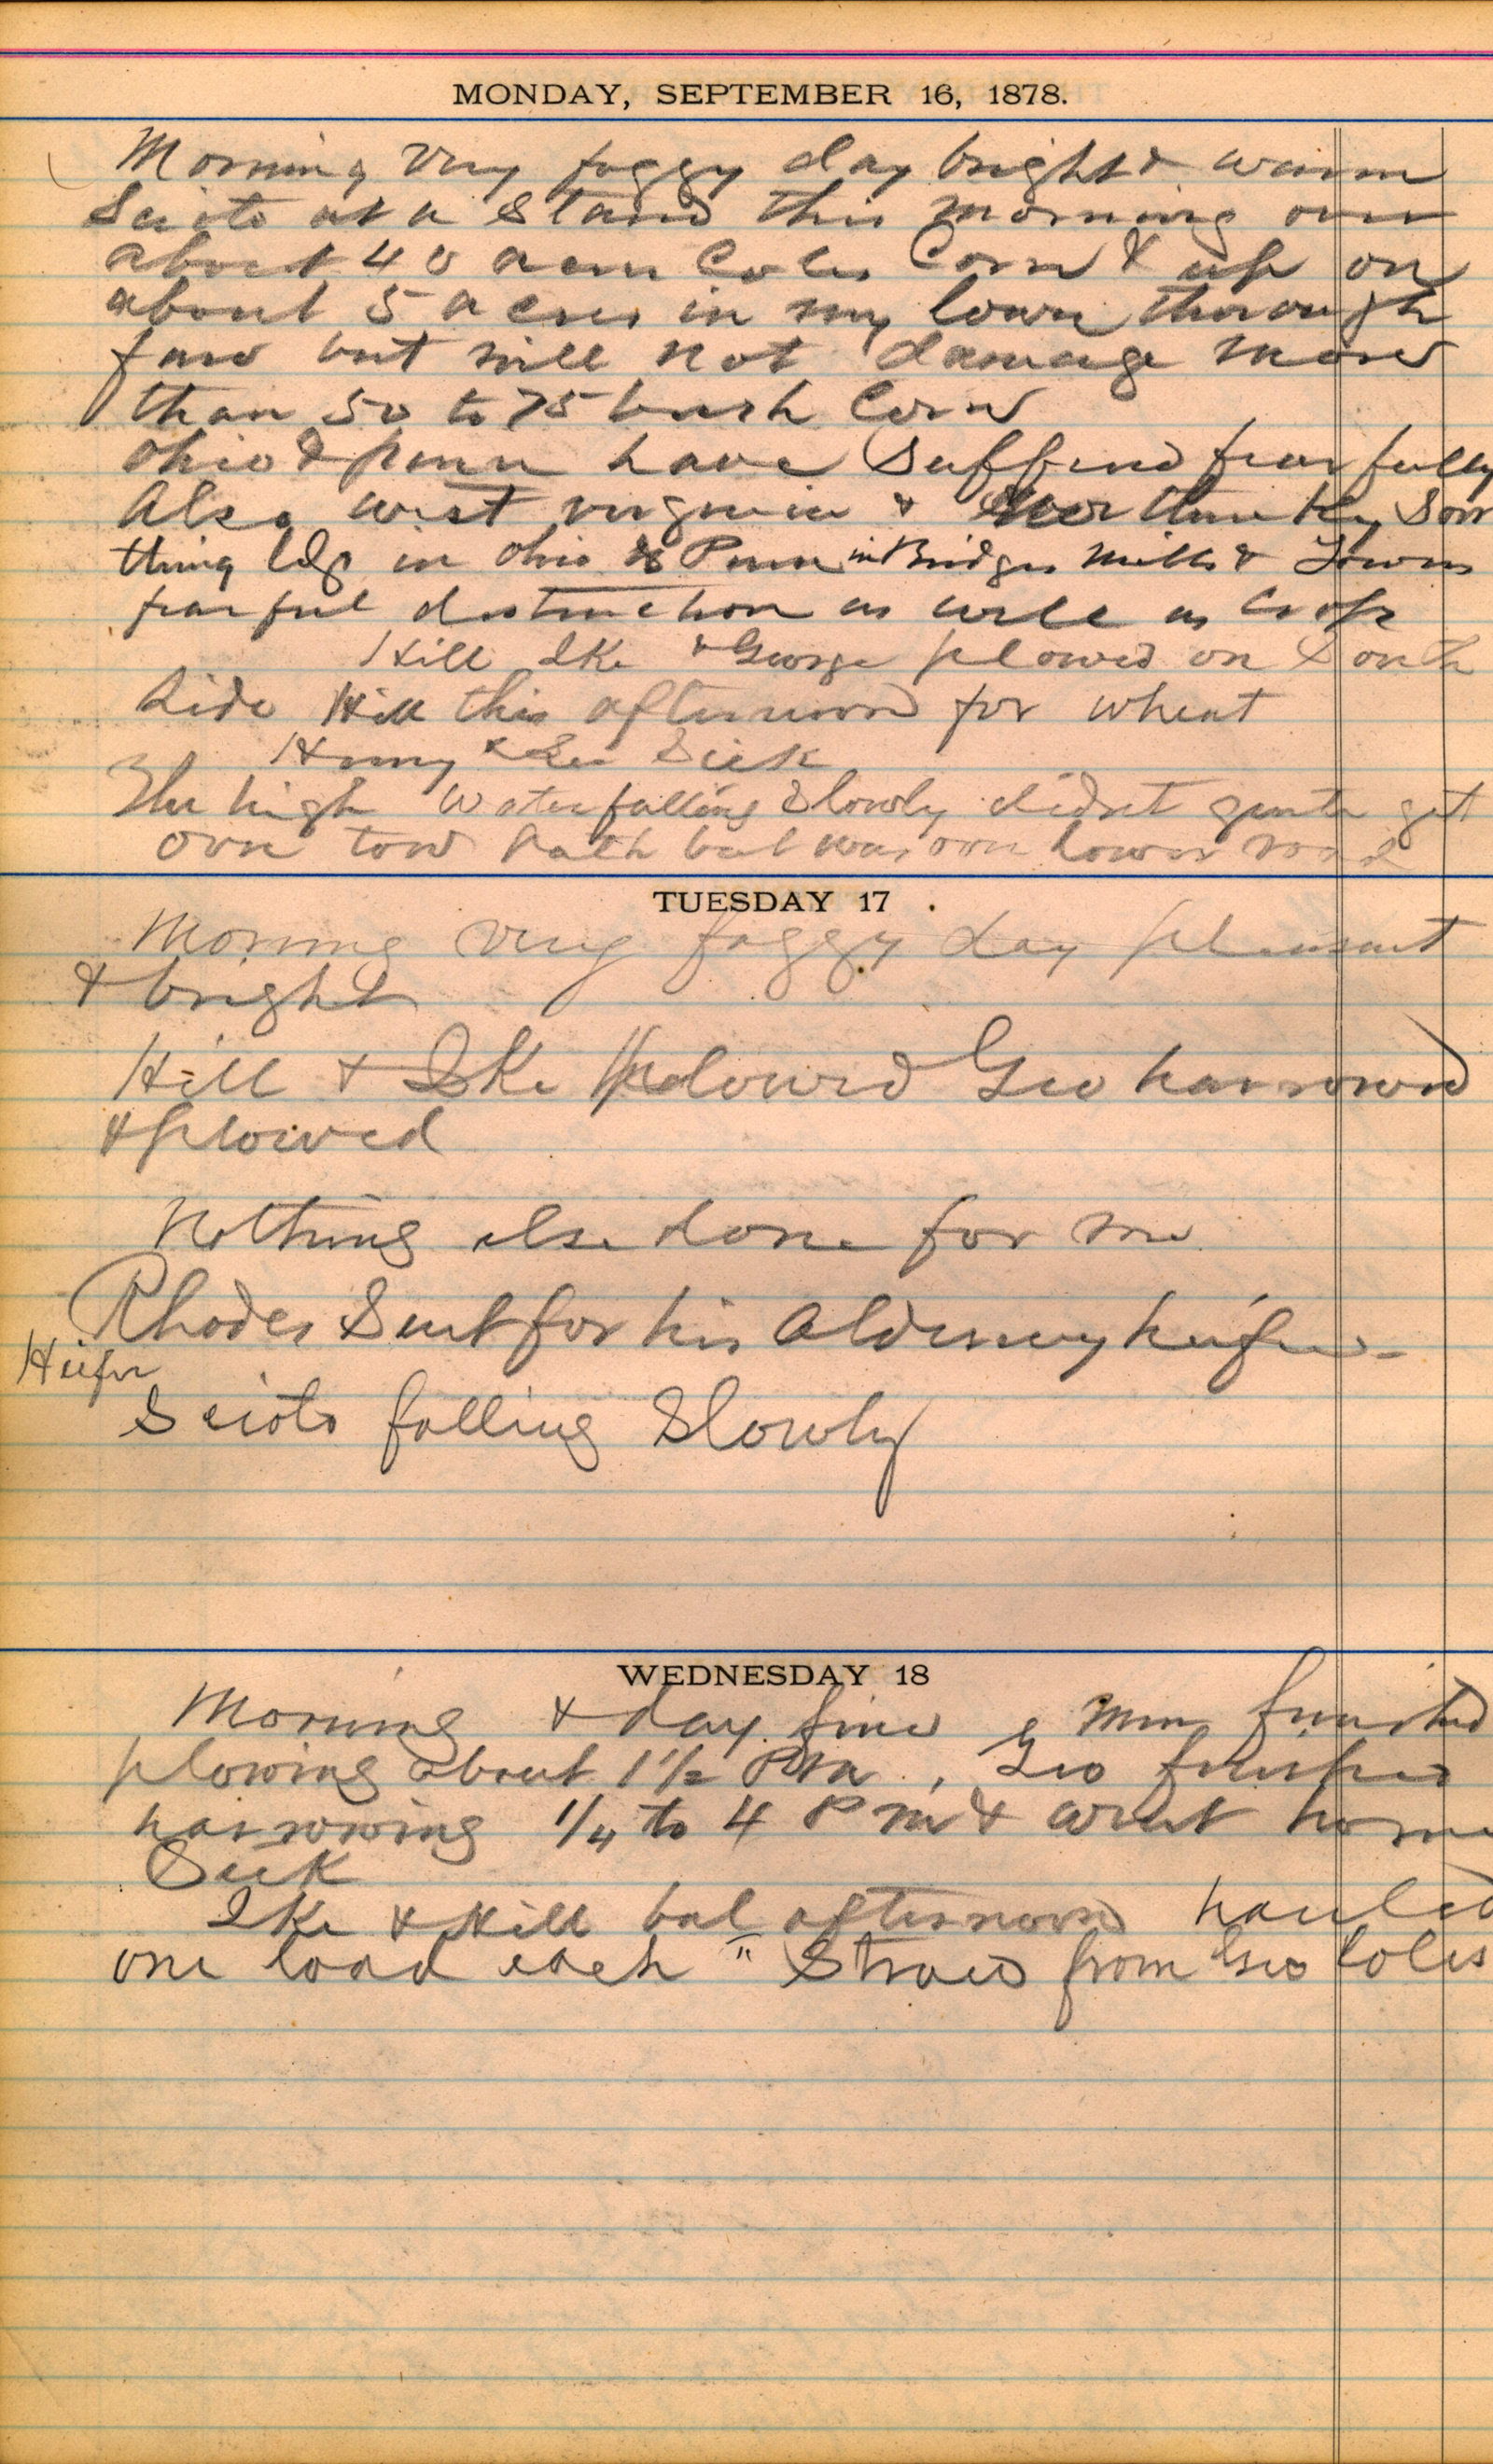 MONDAY, SEPTEMBER 16, 1878.
Morning very foggy day bright & warm
Scioto at a Stand this morning over
about 40 acres Coles Corn & up on
about 5 acres in my lower thorough
fare but will not damage more
than 50 to 75 bush Corn
Ohio & penn have Suffered fearfully
Also west virginia & Som
thing in Ohio & Penn in Bridges Mills & Towns
fearful distruction as well as Crops
Hill Ike & George plowed on South
Side Hill this afternoon for wheat
Henry & Sick
The high Water falling Slowly didnt quite get
over tow path but was over lower road
TUESDAY 17
Morning very foggy day pleasant
& bright
Hill & Ike plowed Geo harrowed
& plowed
Nothing else done for me
Rhodes Sent for his Alderney heifer
Heifer
Scioto falling Slowly
WEDNESDAY 18
Morning & day fine men finished
plowing about 1 1/2 PM, Geo finished
harrowing 1/4 to 4 P M & went home
Sick
Ike & Hill bal afternoon hauled
one load each " Straw from Geo Coles